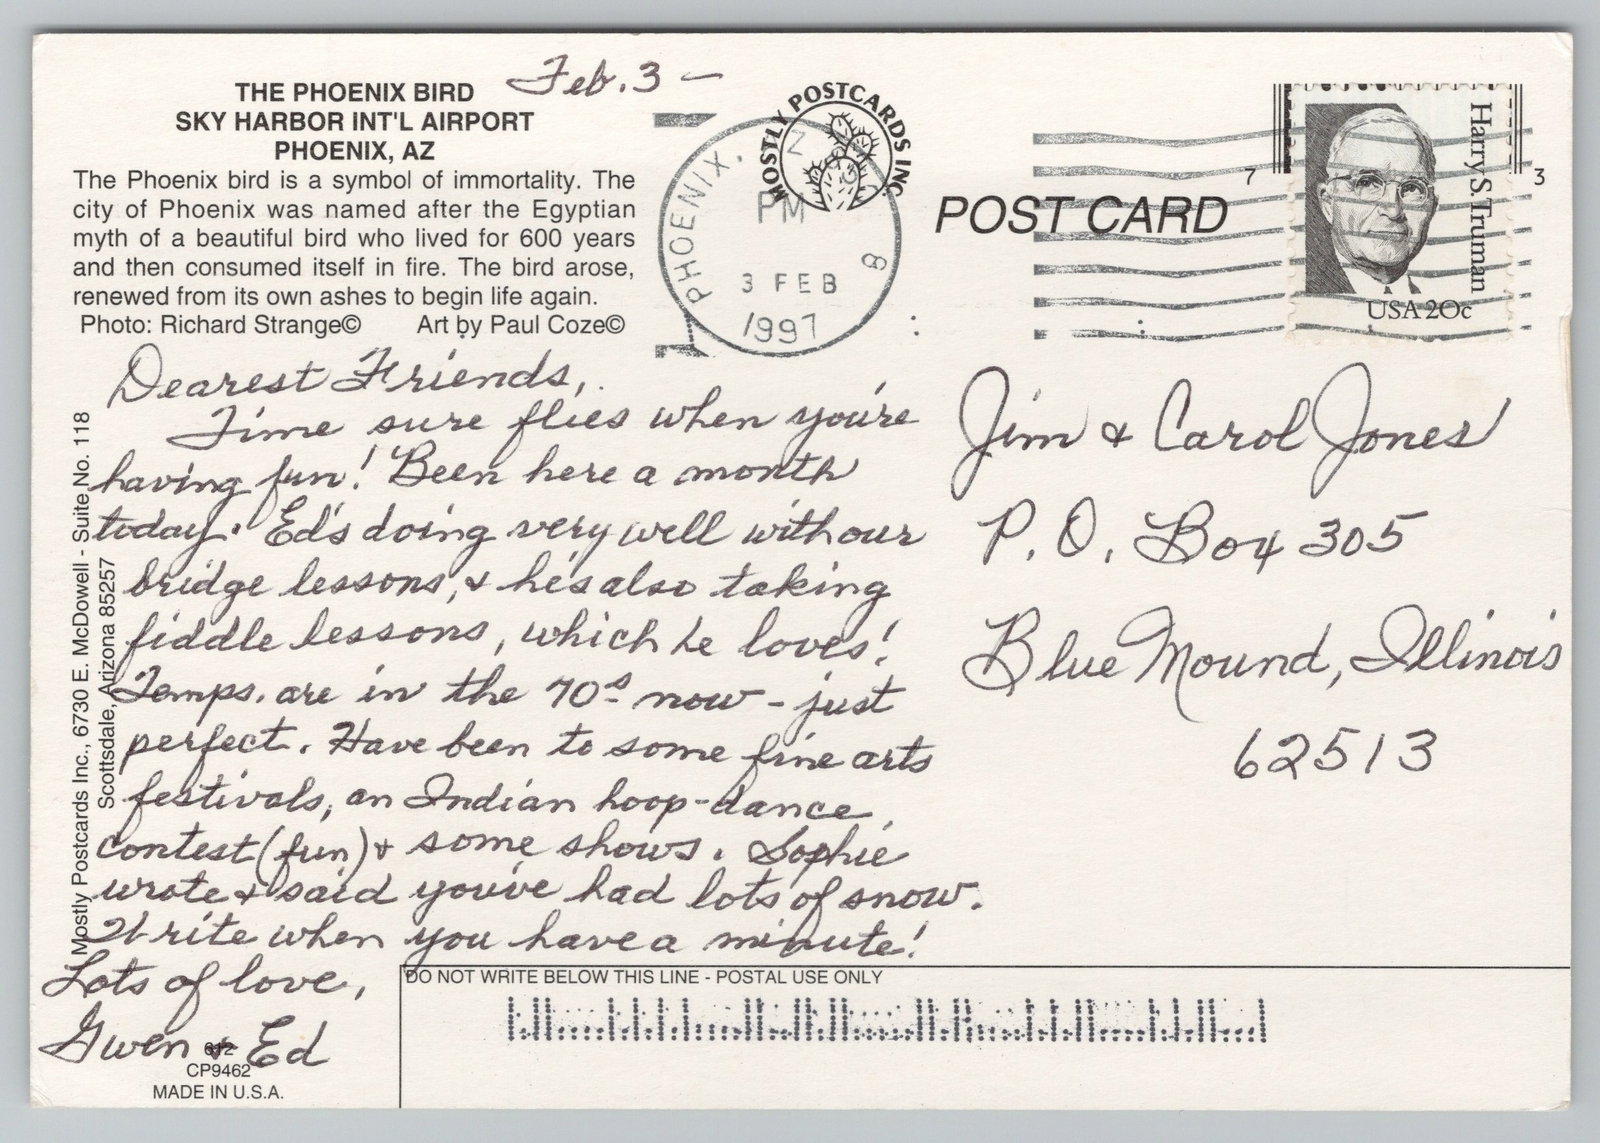 Feb. 3 —
THE PHOENIX BIRD
SKY HARBOR INT'L AIRPORT
PHOENIX, AZ
The Phoenix bird is a symbol of immortality. The
city of Phoenix was named after the Egyptian
myth of a beautiful bird who lived for 600 years
and then consumed itself in fire. The bird arose,
renewed from its own ashes to begin life again.
Photo: Richard Strange© Art by Paul Coze©
MOSTLY POSTCARDS INC.
PHOENIX,
PM
3 FEB
1997
POST CARD
7
3
Harry S. Truman
USA 20c
Dearest Friends,
Time sure flies when you're
having fun! Been here a month
today. Ed's doing very well with our
bridge lessons, & he's also taking
fiddle lessons, which he loves!
Temps. are in the 70s now - just
perfect. Have been to some fine arts
festivals, an Indian hoop-dance
contest (fun) & some shows. Sophie
wrote & said you've had lots of snow.
Write when you have a minute!
Lots of love,
Gwen & Ed
Jim & Carol Jones
P. O. Box 305
Blue Mound, Illinois
62513
Mostly Postcards Inc., 6730 E. McDowell - Suite No. 118
Scottsdale, Arizona 85257
DO NOT WRITE BELOW THIS LINE - POSTAL USE ONLY
612
CP9462
MADE IN U.S.A.